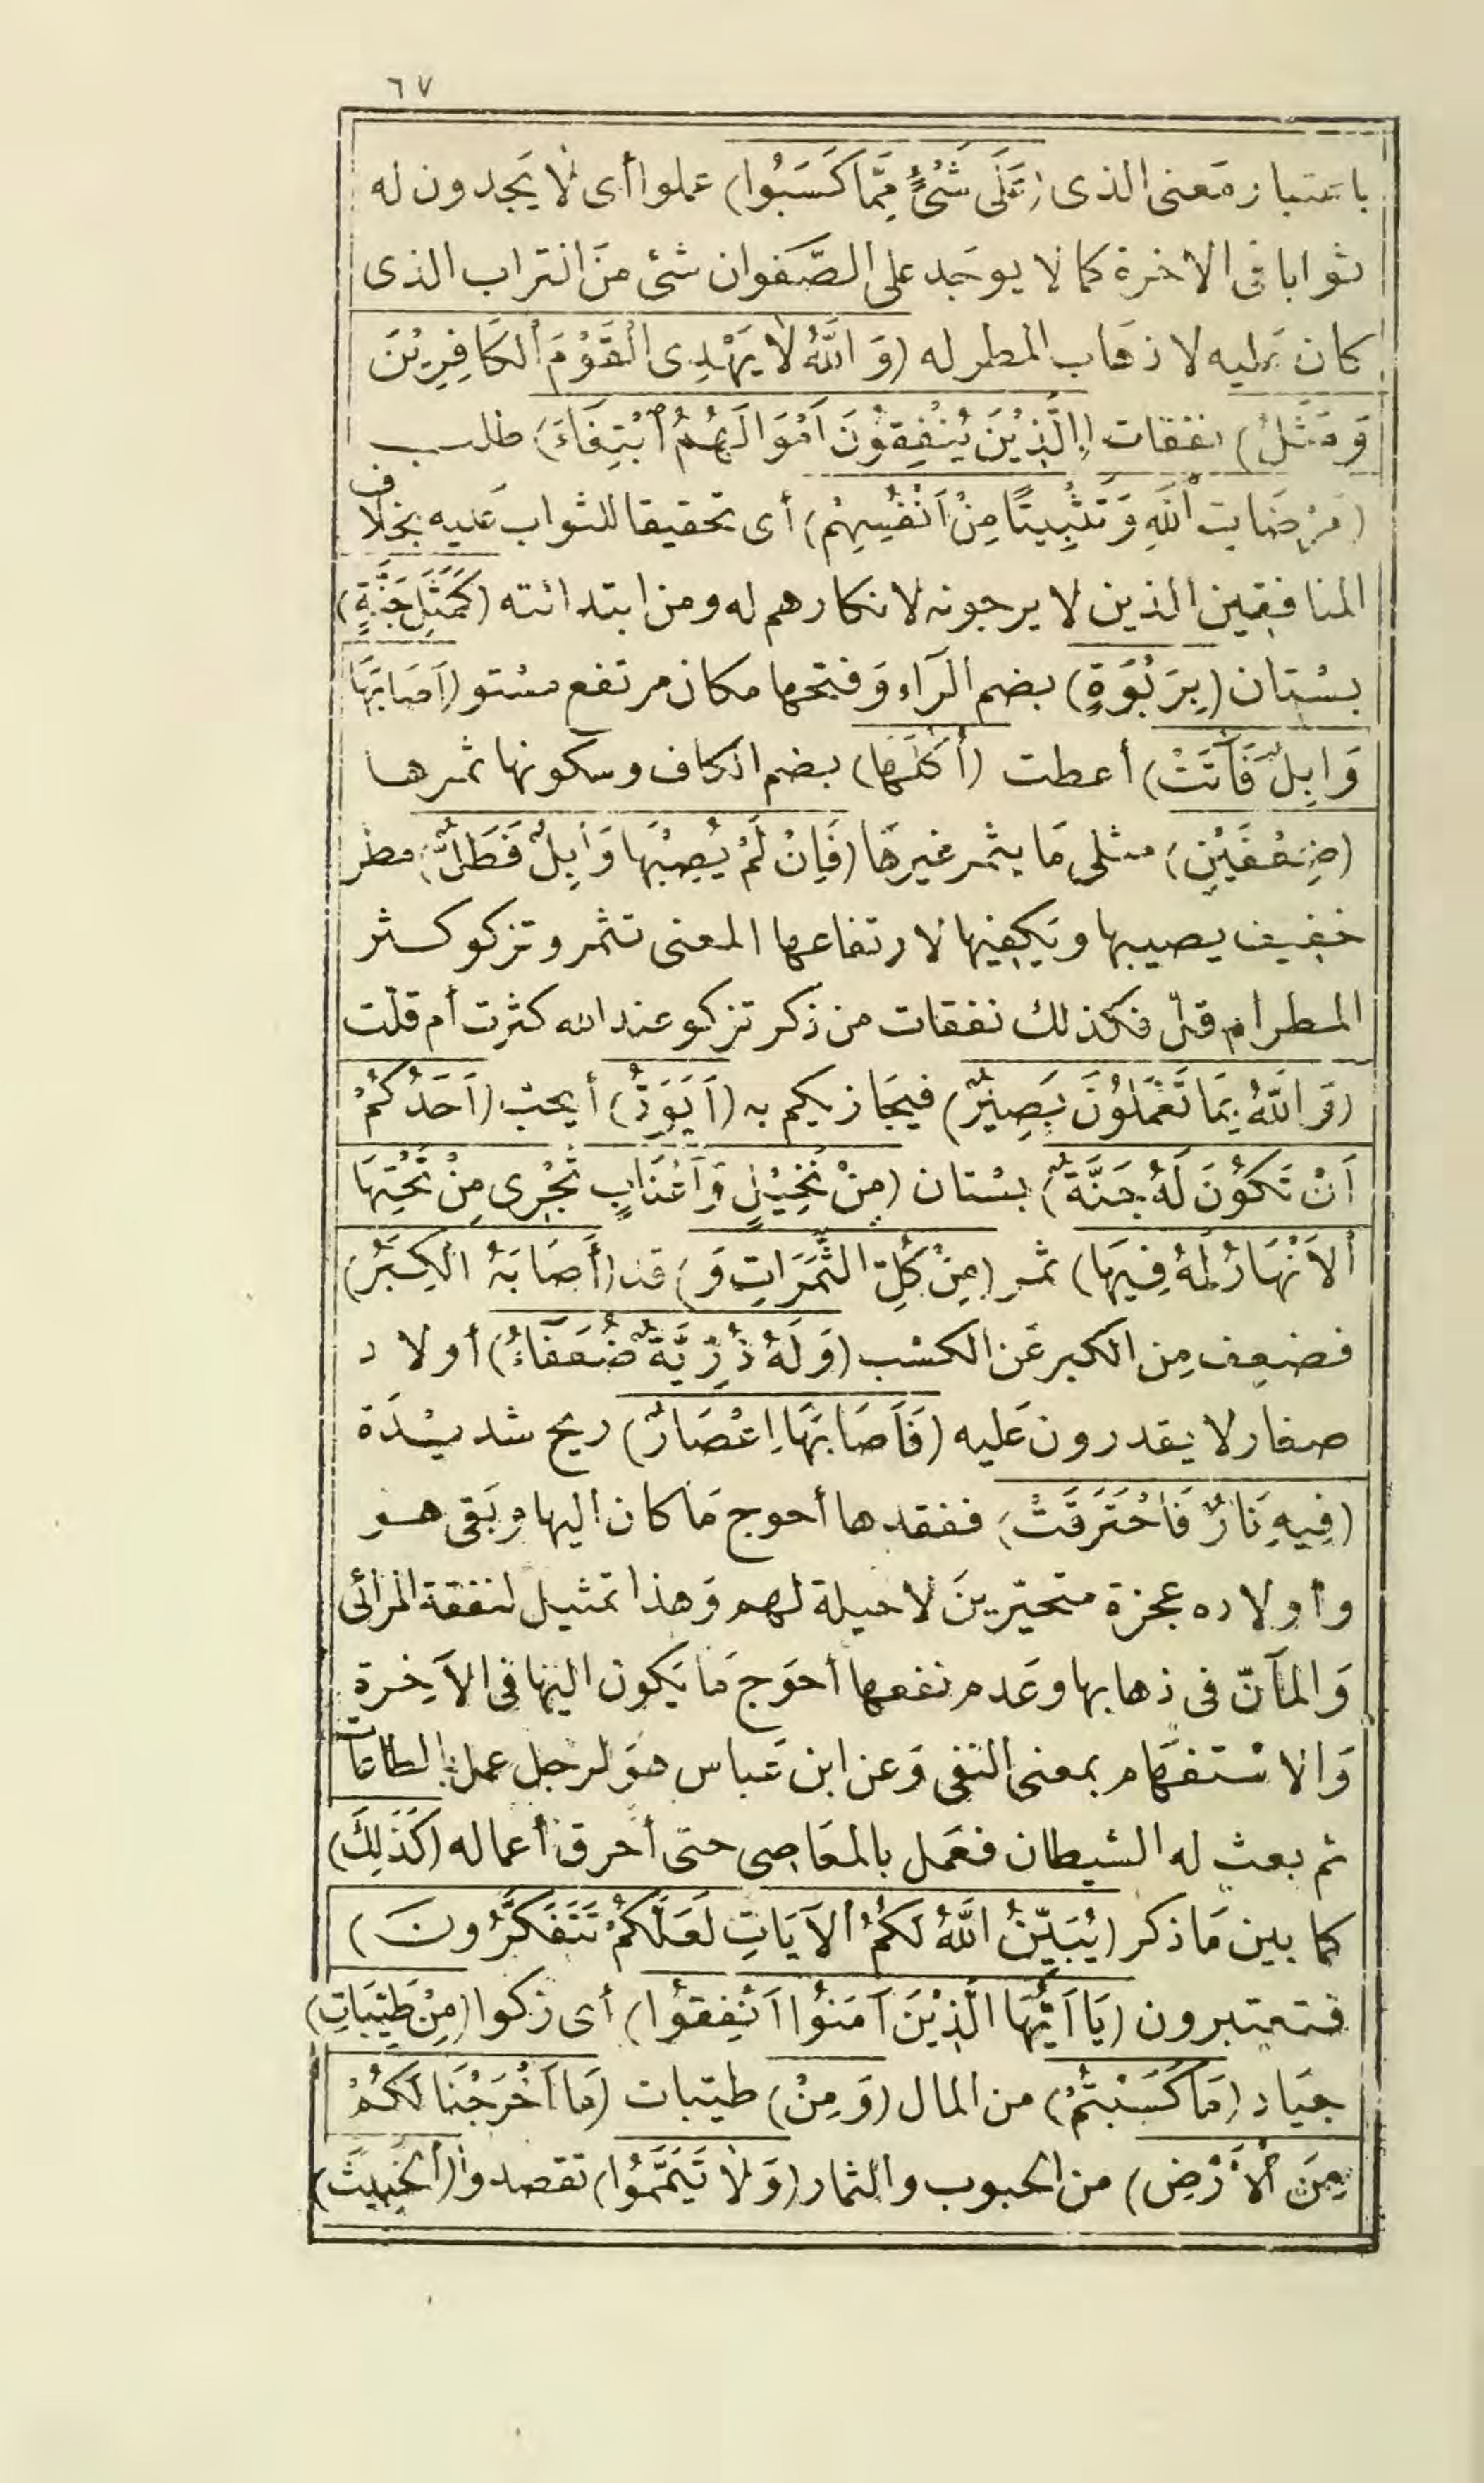 ٦٧
باعتبار معنى الذى (عَلَى شَىْءٍ مِمَّا كَسَبُوا) عملوا أى لا يَجدون له
ثوابا فى الاخرة كما لا يوجَد على الصَّفوان شئ منَ التراب الذى
كان عَليه لاذهاب المطر له (وَاللَّهُ لَا يَهْدِى الْقَوْمَ الْكَافِرِيْنَ
وَمَثَلُ) نفقات (الَّذِيْنَ يُنْفِقُوْنَ اَمْوَالَهُمُ ابْتِغَاءَ) طلب
(مَرْضَاتِ اللَّهِ وَتَثْبِيتًا مِنْ اَنْفُسِهِمْ) أى تحقيقا للثواب عَليه بخلاف
المنافقين الذين لا يرجونه لانكارهم له ومن ابتدائته (كَمَثَلِ جَنَّةٍ)
بسْتان (بِرَبْوَةٍ) بضم الرَاء وَفتحها مكان مرتفع مسْتو (اَصَابَهَا
وَابِلٌ فَآتَتْ) أعطت (أُكُلَهَا) بضم الكاف وسكونها ثمرها
(ضِعْفَيْنِ) مثلى مَا يثمر غيرهَا (فَاِنْ لَمْ يُصِبْهَا وَابِلٌ فَطَلٌّ) مطر
خفيف يصيبها ويَكفيها لارتفاعها المعنى تثمر وتزكو كسثر
المطر ام قلّ فكذلك نفقات من ذكر تزكو عند الله كثرت أم قلّت
(وَاللَّهُ بِمَا تَعْمَلُوْنَ بَصِيْرٌ) فيجَازيكم به (اَيَوَدُّ) أيحبّ (اَحَدُكُمْ
اَنْ تَكُوْنَ لَهُ جَنَّةٌ) بسْتان (مِنْ نَخِيْلٍ وَاَعْنَابٍ تَجْرِى مِنْ تَحْتِهَا
الْاَنْهَارُ لَهُ فِيهَا) ثمر (مِنْ كُلِّ الثَّمَرَاتِ وَ) قد (أَصَابَهُ الْكِبَرُ)
فضعف مِن الكبر عَن الكسْب (وَلَهُ ذُرِّيَّةٌ ضُعَفَاءُ) أولاد
صغار لا يقدرون عَليه (فَاَصَابَهَا اِعْصَارٌ) ريح شديْدَة
(فِيهِ نَارٌ فَاحْتَرَقَتْ) ففقدها أحوج مَا كان اليها وبَقى هو
وأولاده عجزة متحيّرينَ لا حيلة لهم وَهذا تمثيل لنفقة المرائى
وَالمَانّ فى ذهابها وعَدم نفعها أحوَج مَا يَكون اليْها فى الآخِرة
وَالاسْتفهَام بمعنى النفى وَعن ابن عَباس هوَ لرجل عمل بالطاعات
ثم بعث له الشيطان فعَمل بالمعَاصِى حتى أحرق أعماله (كَذَلِكَ)
كما بين مَا ذكر (يُبَيِّنُ اللَّهُ لَكُمُ الْآيَاتِ لَعَلَّكُمْ تَتَفَكَّرُونَ)
فتعتبرون (يَا اَيُّهَا الَّذِيْنَ آمَنُوْا اَنْفِقُوْا) أى زكوا (مِنْ طَيِّبَاتِ)
جيَاد (مَا كَسَبْتُمْ) من المال (وَمِنْ) طيّبات (مَا اَخْرَجْنَا لَكُمْ
مِنَ الْأَرْضِ) من الحبوب والثمار (وَلَا تَيَمَّمُوا) تقصدوا (الْخَبِيثَ)